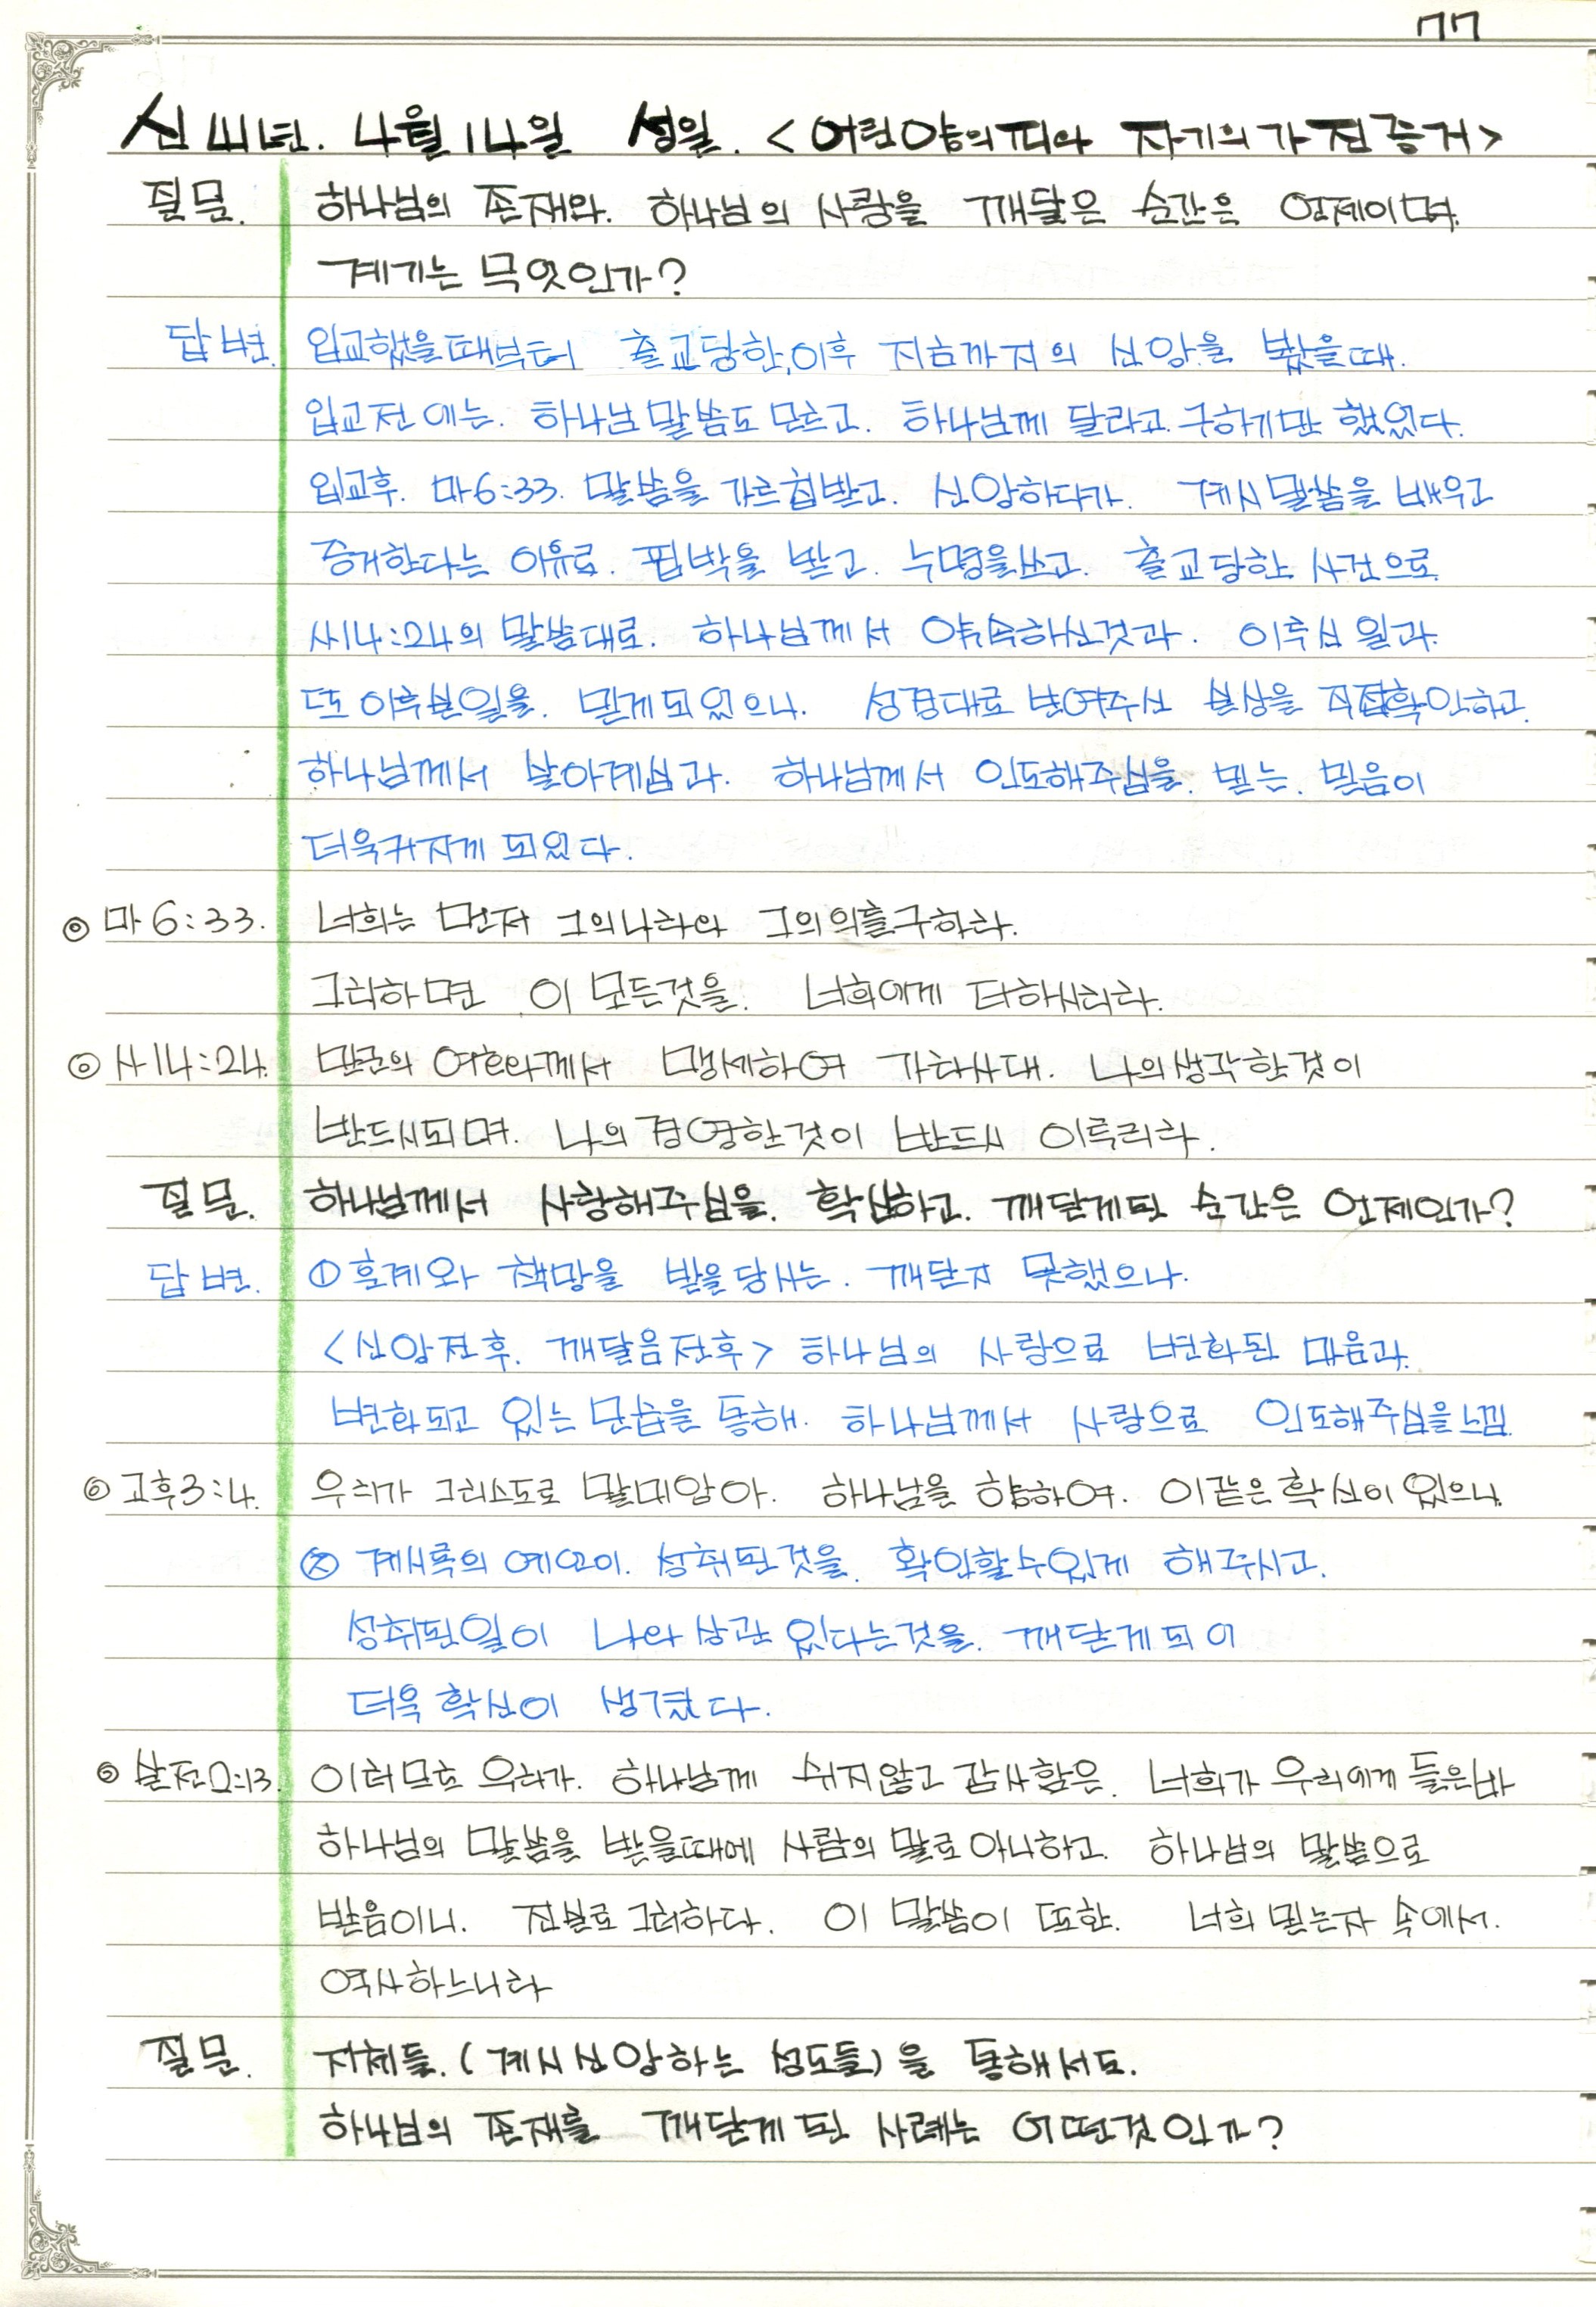 77
신 41년. 4월 14일 성일. <어린양의 피와 자기의 가진 증거>
질문. 하나님의 존재와. 하나님의 사랑을 깨달은 순간은 언제이며.
계기는 무엇인가?
답변. 입교했을때부터 출교당한,이후 지금까지의 신앙을 봤을때.
입교전에는. 하나님 말씀도 모르고. 하나님께 달라고 구하기만 했었다.
입교후. 마6:33. 말씀을 가르침받고. 신앙하다가. 계시말씀을 배우고
증거한다는 이유로. 핍박을 받고. 누명을쓰고. 출교당한 사건으로
사14:24의 말씀대로. 하나님께서 약속하신것과. 이루신 일과.
또 이루실일을. 믿게되었으나. 성경대로 보여주신 실상을 직접확인하고.
하나님께서 살아계심과. 하나님께서 인도해주심을. 믿는. 믿음이
더욱커지게 되었다.
◎ 마 6:33. 너희는 먼저 그의나라와 그의의를구하라.
그리하면 이 모든것을. 너희에게 더하시리라.
◎ 사14:24. 만군의 여호와께서 맹세하여 가라사대. 나의생각한것이
반드시되며. 나의경영한것이 반드시 이루리라.
질문. 하나님께서 사랑해주심을. 확신하고. 깨닫게된 순간은 언제인가?
답변. ① 훈계와 책망을 받을당시는. 깨닫지 못했으나.
<신앙전후. 깨달음전후> 하나님의 사랑으로 변화된 마음과.
변화되고 있는 모습을 통해. 하나님께서 사랑으로 인도해주심을느낌.
◎ 고후3:4. 우리가 그리스도로 말미암아. 하나님을 향하여. 이같은확신이 있으니.
② 계시록의 예언이. 성취된것을. 확인할수있게 해주시고.
성취된일이 나와상관 있다는것을. 깨닫게되어
더욱 확신이 생겼다.
◎ 살전2:13. 이러므로 우리가. 하나님께 쉬지않고 감사함은. 너희가 우리에게 들은바
하나님의 말씀을 받을때에 사람의 말로 아니하고. 하나님의 말씀으로
받음이니. 진실로 그러하다. 이 말씀이 또한. 너희 믿는자 속에서.
역사하느니라
질문. 지체들.(계시신앙하는 성도들)을 통해서도.
하나님의 존재를 깨닫게 된 사례는 어떤것인가?